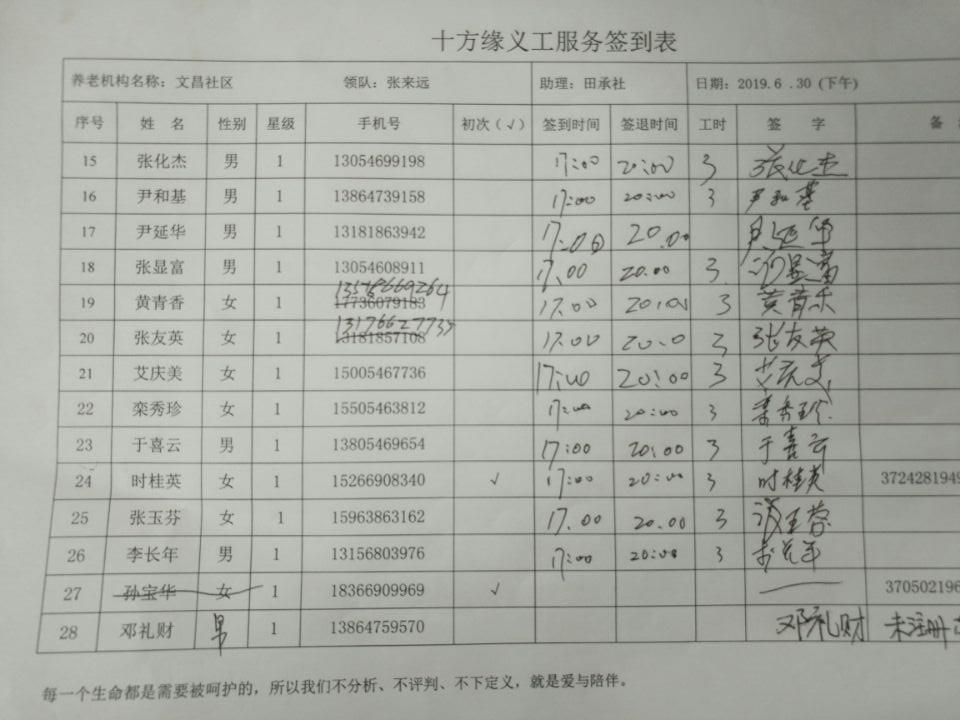 十方缘义工服务签到表
养老机构名称：文昌社区 领队：张来远 助理：田承社 日期：2019.6 .30 (下午)
序号 姓 名 性别 星级 手机号 初次（√） 签到时间 签退时间 工时 签 字 备
15 张化杰 男 1 13054699198 17:00 20:00 3 张化杰
16 尹和基 男 1 13864739158 17:00 20:00 3 尹和基
17 尹延华 男 1 13181863942 17:00 20.00 尹延华
18 张显富 男 1 13054608911 17.00 20.00 3 张显富
13578669264
19 黄青香 女 1 17736079183 17.00 20:00 3 黄青香
13176627735
20 张友英 女 1 13181857108 17.00 20.0 3 张友英
21 艾庆美 女 1 15005467736 17:00 20:00 3 艾庆美
22 栾秀珍 女 1 15505463812 17:00 20:00 3 栾秀珍
23 于喜云 男 1 13805469654 17:00 20:00 3 于喜云
24 时桂英 女 1 15266908340 √ 17:00 20:00 3 时桂英 3724281949
25 张玉芬 女 1 15963863162 17.00 20.00 3 张玉芬
26 李长年 男 1 13156803976 17:00 20:00 3 李长年
27 孙宝华 女 1 18366909969 √ 370502196
28 邓礼财 男 1 13864759570 邓礼财 未注册
每一个生命都是需要被呵护的，所以我们不分析、不评判、不下定义，就是爱与陪伴。